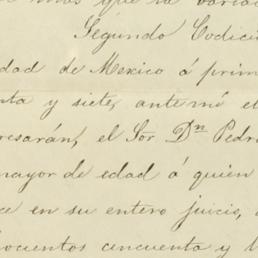 mas que la varia
Segundo Codici
dad de Mexico á prim
ta y siete, ante mí el
resarán, el Sor Dn Pedr
mayor de edad á quien
ce en su entero juicio,
hocuentos cincuenta y